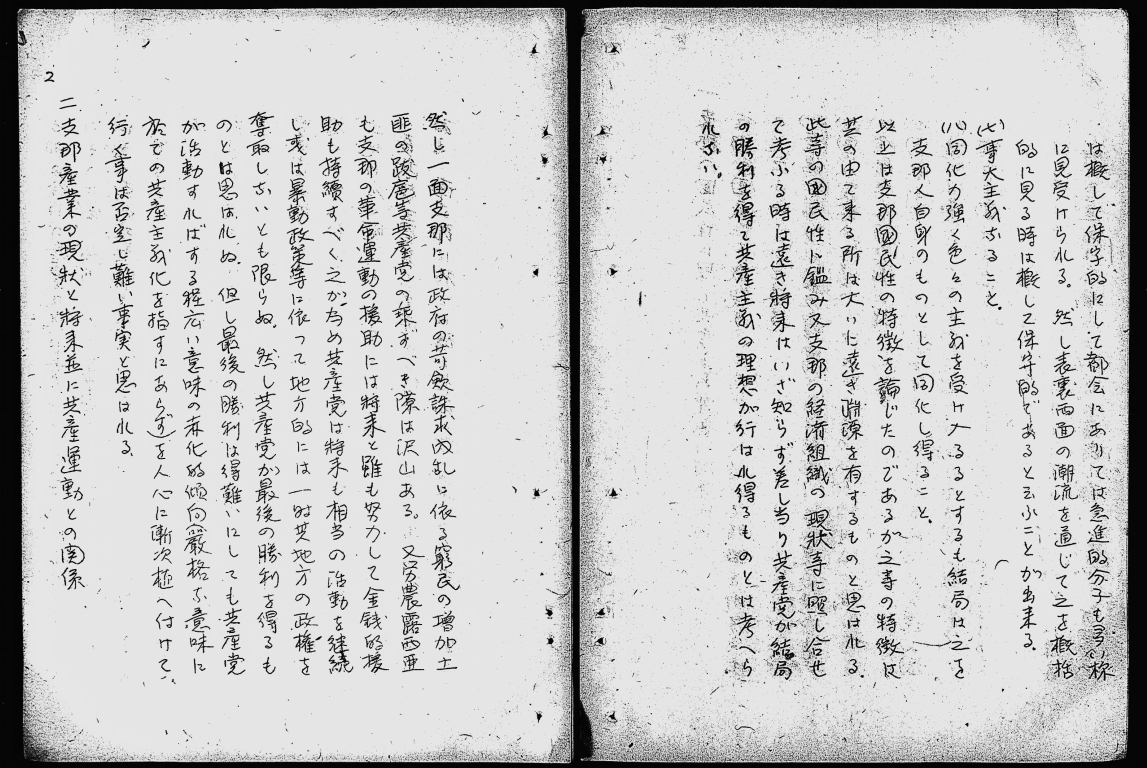 は概して保守的にして都会にありては急進的分子も多い称
に見受けられる。然し表裏両面の潮流を通じて之を概括
的に見る時は概して保守的であると云ふことが出来る。
(七)事大主義なること。
(八)同化力強く色々の主義を受け入るるとするも結局は之を
支那人自身のものとして同化し得ること。
以上は支那国民性の特徴を論じたのであるが之等の特徴は
其の由て来る所は大いに遠き淵源を有するものと思はれる。
此等の国民性に鑑み又支那の経済組織の現状等に照し合せ
て考ふる時は遠き将来はいざ知らず差し当り共産党が結局
の勝利を得て共産主義の理想が行はれ得るものとは考へら
れない。
然し一面支那には政府の苛斂誅求内乱に依る窮民の増加土
匪の跋扈等共産党の乗ずべき隙は沢山ある。又労農露西亜
も支那の革命運動の援助には将来と雖も努力して金銭的援
助も持続すべく之がため共産党は将来も相当の活動を継続
し或は暴動政策等に依って地方的には一時其地方の政権を
奪取しないとも限らぬ。然し共産党が最後の勝利を得るも
のとは思はれぬ。但し最後の勝利は得難いにしても共産党
が活動すればする程広い意味の赤化的傾向(厳格な意味に
於ての共産主義化を指すにあらず)を人心に漸次植へ付けて
行く事は否定し難い事実と思はれる
2
二 支那産業の現状と将来並に共産運動との関係